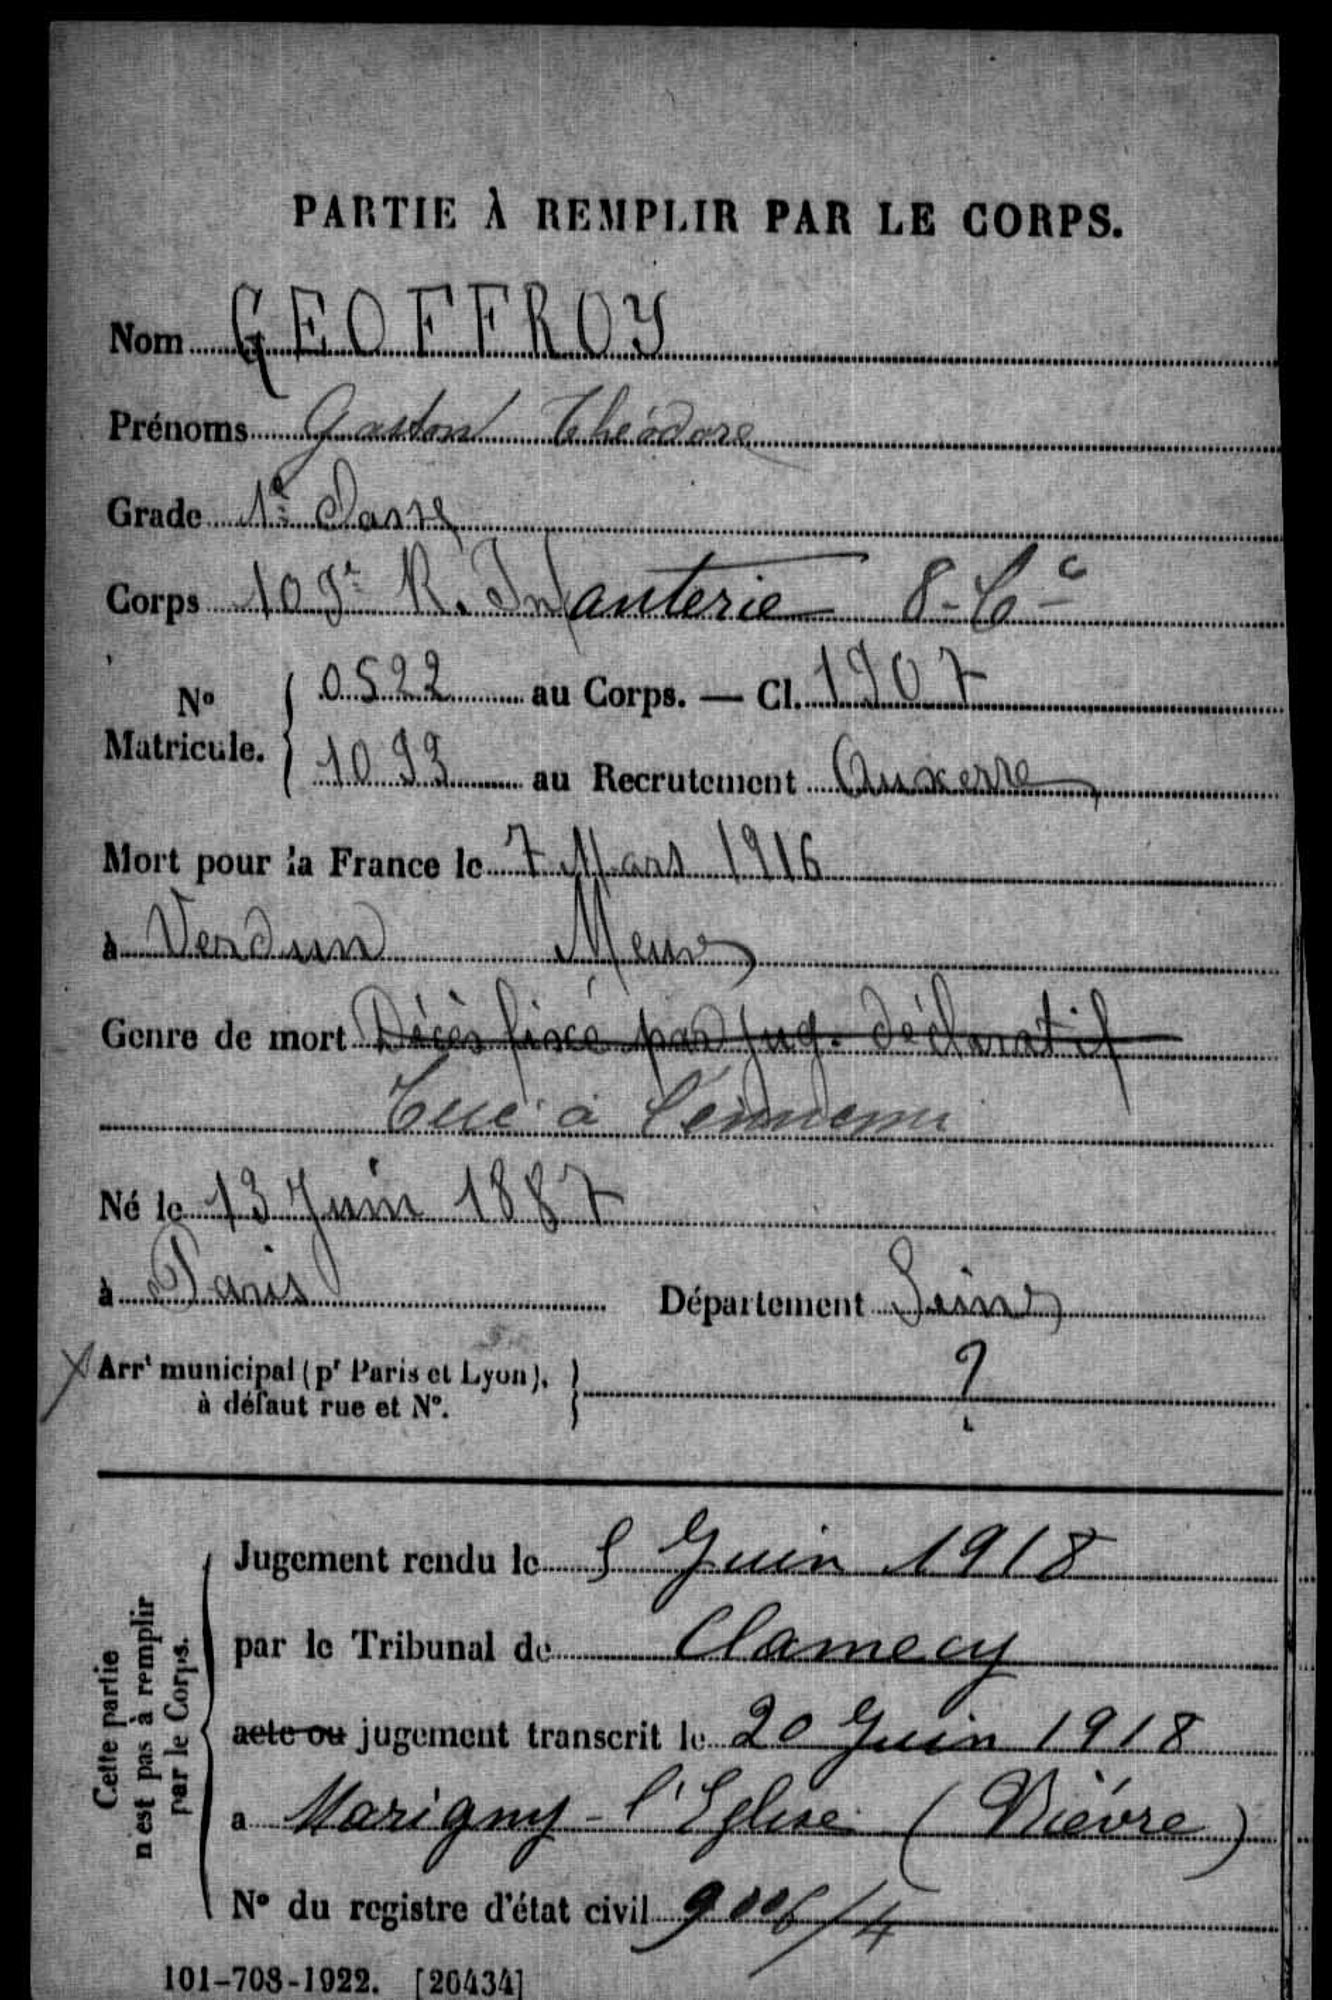 PARTIE À REMPLIR PAR LE CORPS.
Nom GEOFFROY
Prénoms Gaston Théodore
Grade 1e Classe
Corps 109e R. Infanterie 8e Cie
No Matricule. 0522 au Corps. — Cl. 1907
1093 au Recrutement Auxerre
Mort pour la France le 7 Mars 1916
à Verdun Meuse
Genre de mort Décès fixé par jug. déclaratif
Tué à l'ennemi
Né le 13 Juin 1887
à Paris Département Seine
Arrt municipal (pr Paris et Lyon), ?
à défaut rue et No.
Cette partie
n'est pas à remplir
par le Corps.
Jugement rendu le 5 Juin 1918
par le Tribunal de Clamecy
acte ou jugement transcrit le 20 Juin 1918
a Marigny-l'Eglise (Nièvre)
No du registre d'état civil
101-708-1922. [26434]